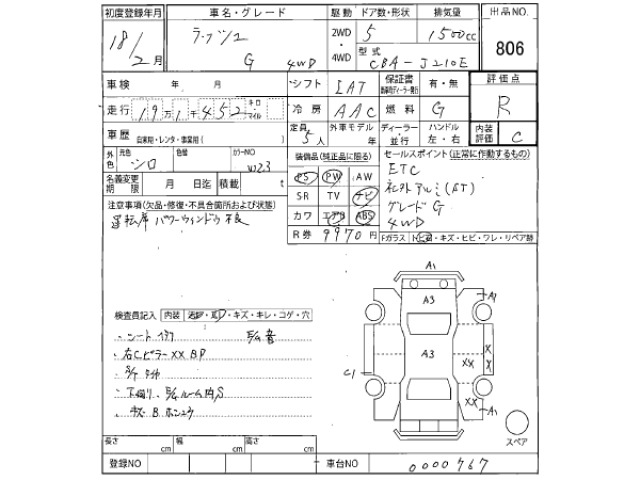 初度登録年月 車名・グレード 駆動 ドア数・形状 排気量 出品NO.
18/2月 ラッシュ G 4WD 2WD・4WD 5 1500cc 806
型式 CBA-J210E
車検 年 月 シフト IAT 保証書 有・無 評価点
走行 19万1千452 キロ マイル 冷房 AAC 燃料 G R
車歴 自家用・レンタ・事業用( ) 定員 5人 外車モデル 年 ディーラー 並行 ハンドル 左・右 内装評価 C
外色 元色 シロ 色替 カラーNO W23 装備品(純正品に限る) セールスポイント(正常に作動するもの)
PS PW AW ETC
名義変更期限 月 日迄 積載 t SR TV ナビ 社外アルミ(ST)
注意事項(欠品・修復・不具合箇所および状態) カワ エアB ABS グレードG
運転席 パワーウィンドウ不良 R券 9970円 4WD
Fガラス トビ石・キズ・ヒビ・ワレ・リペア跡
A1
A3
A1
検査員記入 内装 ・キズ・キレ・コゲ・穴
・シート
・右Cピラーxx BP
A3
xx
x
x
C1
xx
A1
スペア
長さ cm 幅 cm 高さ cm
登録NO 車台NO 0000767